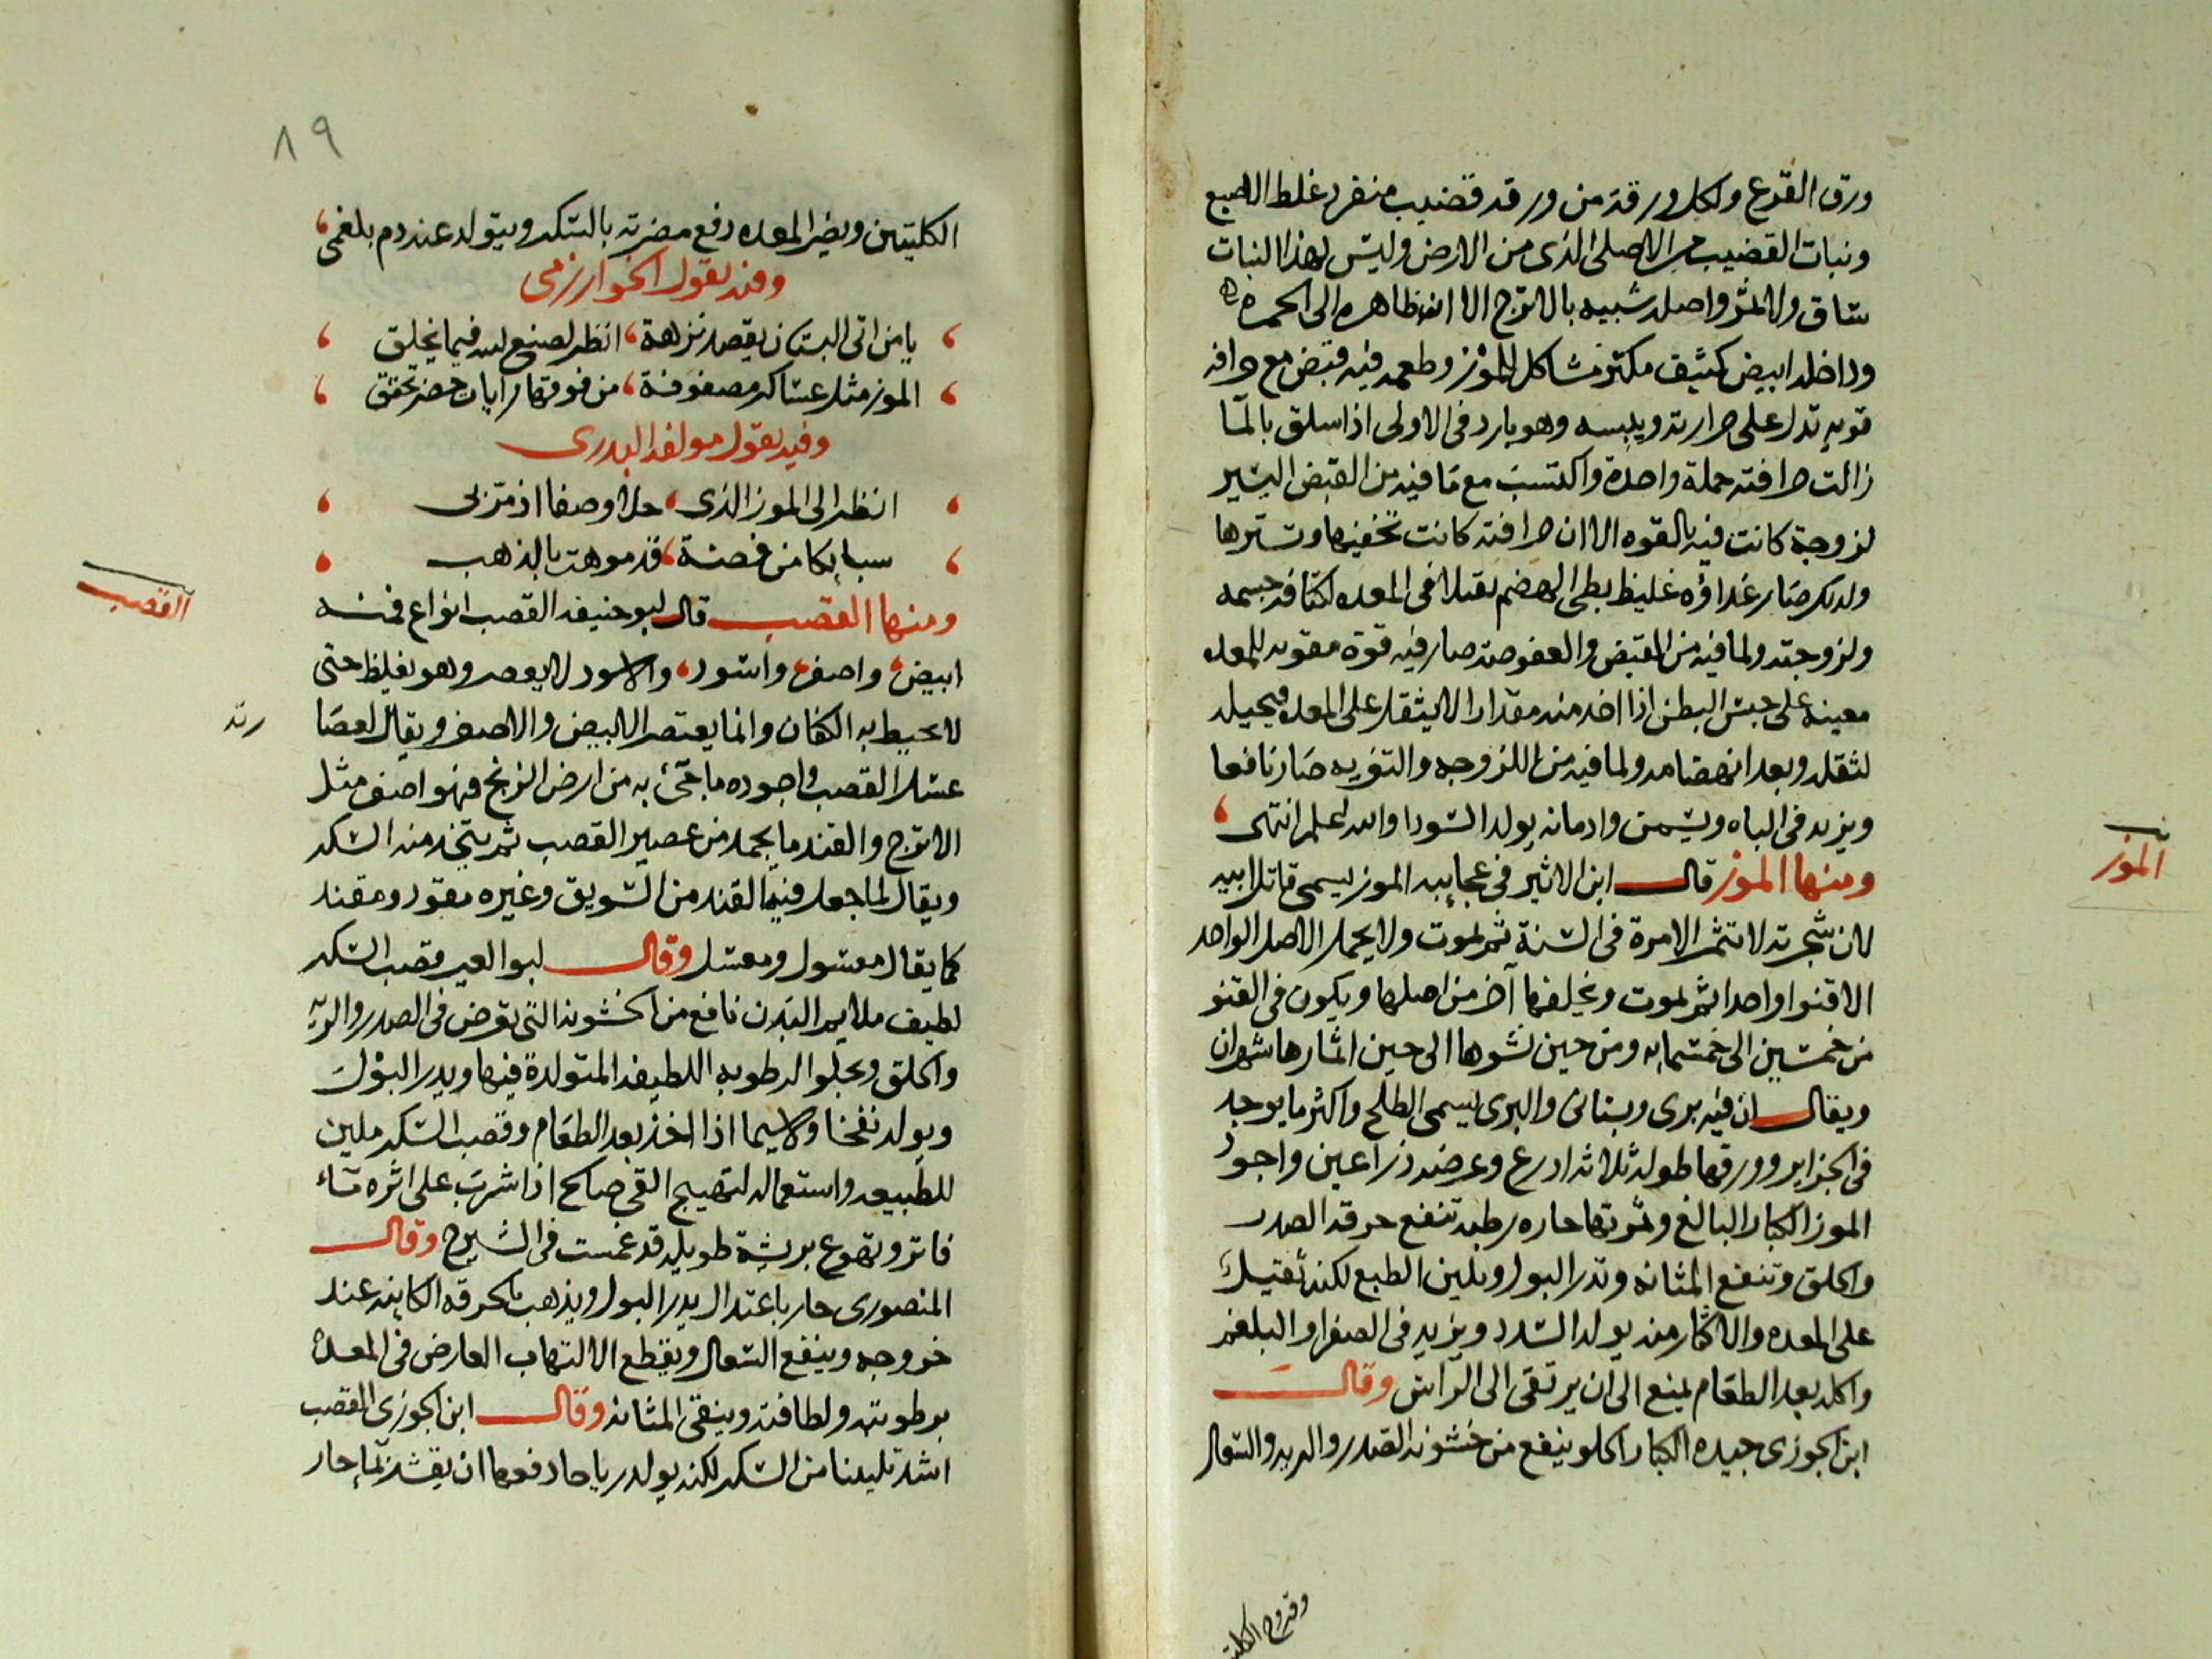 ورق القرع ولكل ورقة من ورقه قضيب منفرد غلظ الاصبع
ونبات القضيب من الاصل الذى من الارض وليس لهذا النبات
ساق ولا ثمر واصله شبيه بالاترج الا ان ظاهره الى الحمرة
وداخله ابيض كثيف مكتنز مشاكل للموز وطعمه فيه قبض مع حرافه
قويه تدل على حرارته ويبسه وهو بارد فى الاولى اذا سلق بالما
زالت حرافته جملة واحدة واكتسب مع ما فيه من القبض اليسير
لزوجة كانت فيه بالقوه الا ان حرافته كانت تخفيها وتسترها
ولذلك صار غذاؤه غليظ بطى الهضم ثقيلا فى المعده لكثافة جسمه
ولزوجته ولما فيه من القبض والعفوصة صار فيه قوة مقويه للمعده
معينه على حبس البطن اذا اخد منه مقدار الا يثقل على المعده فيحيله
لثقله وبعد انهضامه ولما فيه من اللزوجه والتغريه صار نافعا
ويزيد فى الباه ويسمن وادمانه يولد السودا والله اعلم انتهى
ومنها الموز قال ابن الاثير فى عجايبه الموز يسمى قاتل ابيه
لان شجرته لا تثمر الا مرة فى السنة ثم تموت ولا يحمل الاصل الواحد
الا قنوا واحدا ثم تموت ويخلفها آخر من اصلها ويكون فى القنو
من خمسين الى خمسمايه ومن حين نشوها الى حين اثمارها شهران
ويقال ان فيه برى وبستانى والبرى يسمى الطلح واكثر ما يوجد
فى الجزاير وورقها طوله ثلاثة ادرع وعرضه ذراعين واجود
الموز الكبار البالغ وثمرتها حاره رطبه تنفع حرقة الصدر
والحلق وتنفع المثانه وتدر البول وتلين الطبع لكنه ثقيل
على المعده والاكثار منه يولد السدد ويزيد فى الصفرا والبلغم
واكله بعد الطعام يمنع الى ان يرتقى الى الراس وقال
ابن الجوزى جيده الكبار الحلو ينفع من خشونة الصدر والريه والسعال
وقروح الكليتين
الموز
٨٩
الكليتين ويضر المعده دفع مضرته بالسكر ويتولد عنه دم بلغمى
وفيه يقول الخوارزمى
يا من اتى البستان يقصد نزهة انظر لصنع الله فيما يخلق
الموز مثل عساكر مصفوفة من فوقها رايات خضر تخفق
وفيه يقول مولفه البدرى
انظر الى الموز الذى حلا وصفا اذ متزبى
سبايكا من فضة قد موهت بالذهب
ومنها القصب قال ابو حنيفه القصب انواع فمنه
ابيض واصفر واسود والاسود لا يعصر وهو يغلظ حتى
لا يحيط به الكفان وانما يعتصر الابيض والاصفر ويقال لعصارته
عسل القصب واجوده ما جئ به من ارض الزنج فهو اصفر مثل
الاترج والقند ما يجمد من عصير القصب ثم يتخذ منه السكر
ويقال لما جعل فيه القند من السويق وغيره مقنود ومقند
كما يقال معسول ومعسل وقال ابو الخير قصب السكر
لطيف ملايم البدن نافع من الخشونة التى تعرض فى الصدر والريه
والحلق ويجلوا الرطوبه اللطيفه المتولدة فيها ويدر البول
ويولد نفخا ولا سيما اذا اخذ بعد الطعام وقصب السكر ملين
للطبيعه واستعماله لتهييج القى صالح اذا شرب على اثره ماء
فاتر وتهوع بريشة طويله قد غمست فى الشيرج وقال
المنصورى حار باعتدال يدر البول ويذهب بالحرقه الكاينه عند
خروجه وينفع السعال ويقطع الالتهاب العارض فى المعدة
برطوبته ولطافته وينقى المثانه وقال ابن الجوزى القصب
اشد تليينا من السكر لكنه يولد رياحا دفعها ان يقشر بما حار
القصب